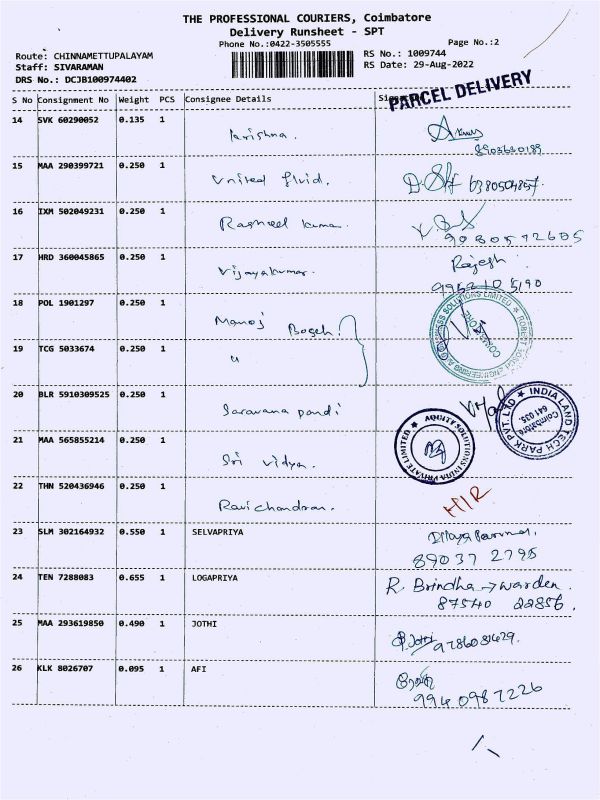 THE PROFESSIONAL COURIERS, Coimbatore
Delivery Runsheet - SPT
Phone No.:0422-3505555
Page No.:2
Route: CHINNAMETTUPALAYAM
RS No.: 1009744
Staff: SIVARAMAN
RS Date: 29-Aug-2022
DRS No.: DCJB100974402
PARCEL DELIVERY
S No Consignment No Weight PCS Consignee Details
14 SVK 60290052 0.135 1
15 MAA 290399721 0.250 1 United fluid.
16 IXM 502049231 0.250 1
17 HRD 360045865 0.250 1 Vijayakumar. Rajesh
18 POL 1901297 0.250 1 Manoj Bosch
19 TCG 5033674 0.250 1 "
20 BLR 5910309525 0.250 1 Saravana pandi
21 MAA 565855214 0.250 1 Sri Vidya.
22 THN 520436946 0.250 1 Ravichandran.
23 SLM 302164932 0.550 1 SELVAPRIYA
89037 2795
24 TEN 7288083 0.655 1 LOGAPRIYA R. Brindha → warden.
87540 22856.
25 MAA 293619850 0.490 1 JOTHI
26 KLK 8026707 0.095 1 AFI
9940987226
AQUITY SOLUTIONS INDIA PRIVATE LIMITED
INDIA LAND TECH PARK PVT. LTD
Coimbatore
641 035.